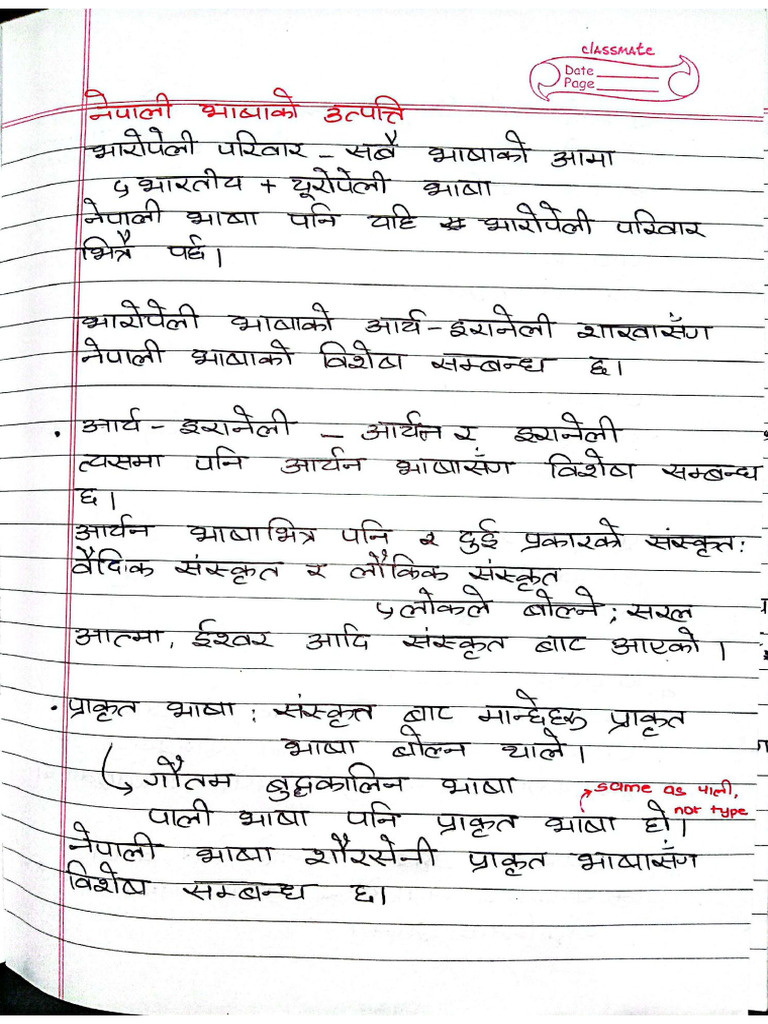 classmate
Date
Page
नेपाली भाषाको उत्पत्ति
भारोपेली परिवार - सबै भाषाको आमा
↳ भारतीय + यूरोपेली भाषा
नेपाली भाषा पनि यहि भारोपेली परिवार
भित्रै पर्छ।
भारोपेली भाषाको आर्य-इरानेली शाखासँग
नेपाली भाषाको विशेष सम्बन्ध छ।
• आर्य - इरानेली - आर्यन र इरानेली
त्यसमा पनि आर्यन भाषासँग विशेष सम्बन्ध
छ।
आर्यन भाषाभित्र पनि २ दुई प्रकारको संस्कृत:
वैदिक संस्कृत र लौकिक संस्कृत
↳ लोकले बोल्ने; सरल
आत्मा, ईश्वर आदि संस्कृत बाट आएको।
• प्राकृत भाषा: संस्कृत बाट मान्छेहरू प्राकृत
भाषा बोल्न थाले।
↳ गौतम बुद्धकालिन भाषा
same as पाली,
not type
पाली भाषा पनि प्राकृत भाषा हो।
नेपाली भाषा शौरसेनी प्राकृत भाषासँग
विशेष सम्बन्ध छ।